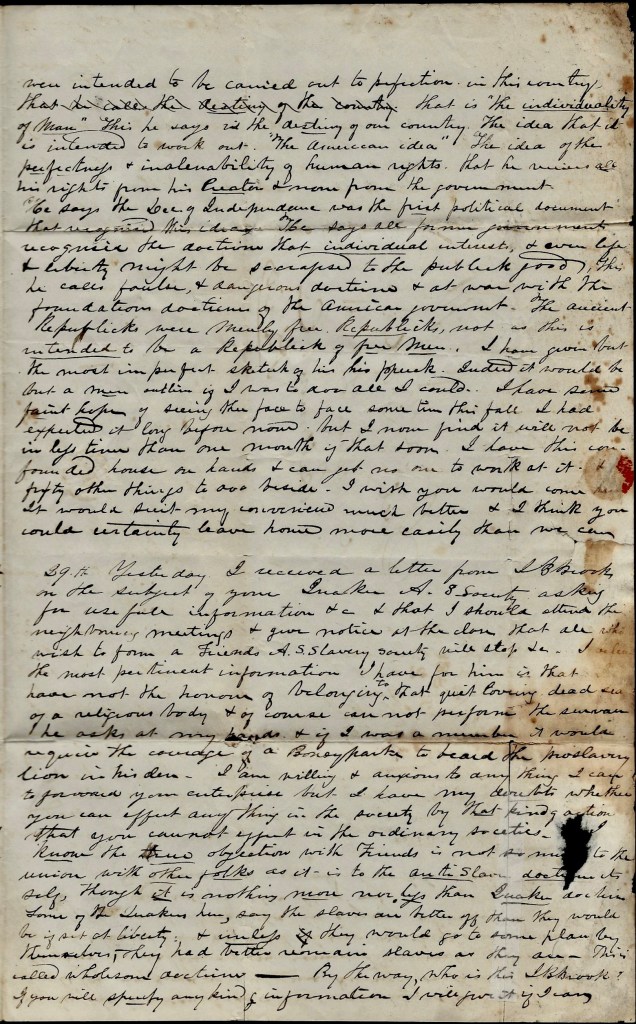 were intended to be carried out to perfection in this country
that he all the destiny of the country. that is "the individuality
of Man" This he says is the destiny of our country. The idea that it
is intended to work out. "The American idea" The idea of the
perfectness & inalienability of human rights. that he receives all
his rights from his Creator & none from the government
He says the Dec of Independance was the first political document
that recognised this idea He says all former governments
recognised the doctrine that individual interest, & even life
& liberty might be sacrafised to the publick good, this
he calls foul, & dangerous doctrine & at war with the
foundation doctrine of the American goverment. The ancient
Republicks were merely free Republicks, not as this is
intended to be a Republick of free Men. I have given but
the most imperfect sketch of his speech. Indeed it would be
but a mere outline if I was to doo all I could. I have some
faint hope of seeing thee face to face some time this fall I had
expected it long before now. but I now find it will not be
in less time than one month if that soon. I have this con-
founded house on hands & can get no one to work at it. &
fifty other things to doo beside. I wish you would come
It would suit my convenience much better & I think you
could certainty leave home more easily than we can
29th Yesterday I received a letter from I B Brook
on the subject of your Quaker A. S Society asking
for usefull information &c & that I should attend the
neighboring meetings & give notice at the close that all who
wish to form a Friends A. S. Slavery society will stop &c. I
the most pertinent information I have for him is that I
have not the honour of belonging to that quiet loving dead sea
of a religious body & of course can not perform the service
he asks at my hands & if I was a member it would
require the courage of a Boneyparte to beard the proslavery
lion in his den. I am willing & anxious to any thing I can
to forward your enterprise but I have my doubts whether
you can effect any thing in the society by that kind of action
that you cannot effect in the ordinary societies. I
know the true objection with Friends is not so much to the
union with other folks as it is to the anti Slave doctrine its
self, though it is nothing more nor less than Quaker doctrine
Some of the Quakers here, say the slaves are better off than they would
be if set at liberty. & unless they would go to some place by
themselves, they had better remain slaves as they are - This is
called wholesom doctrine — By the way, who is this I B Brook?
If you will specify any kind of information I will give it if I can